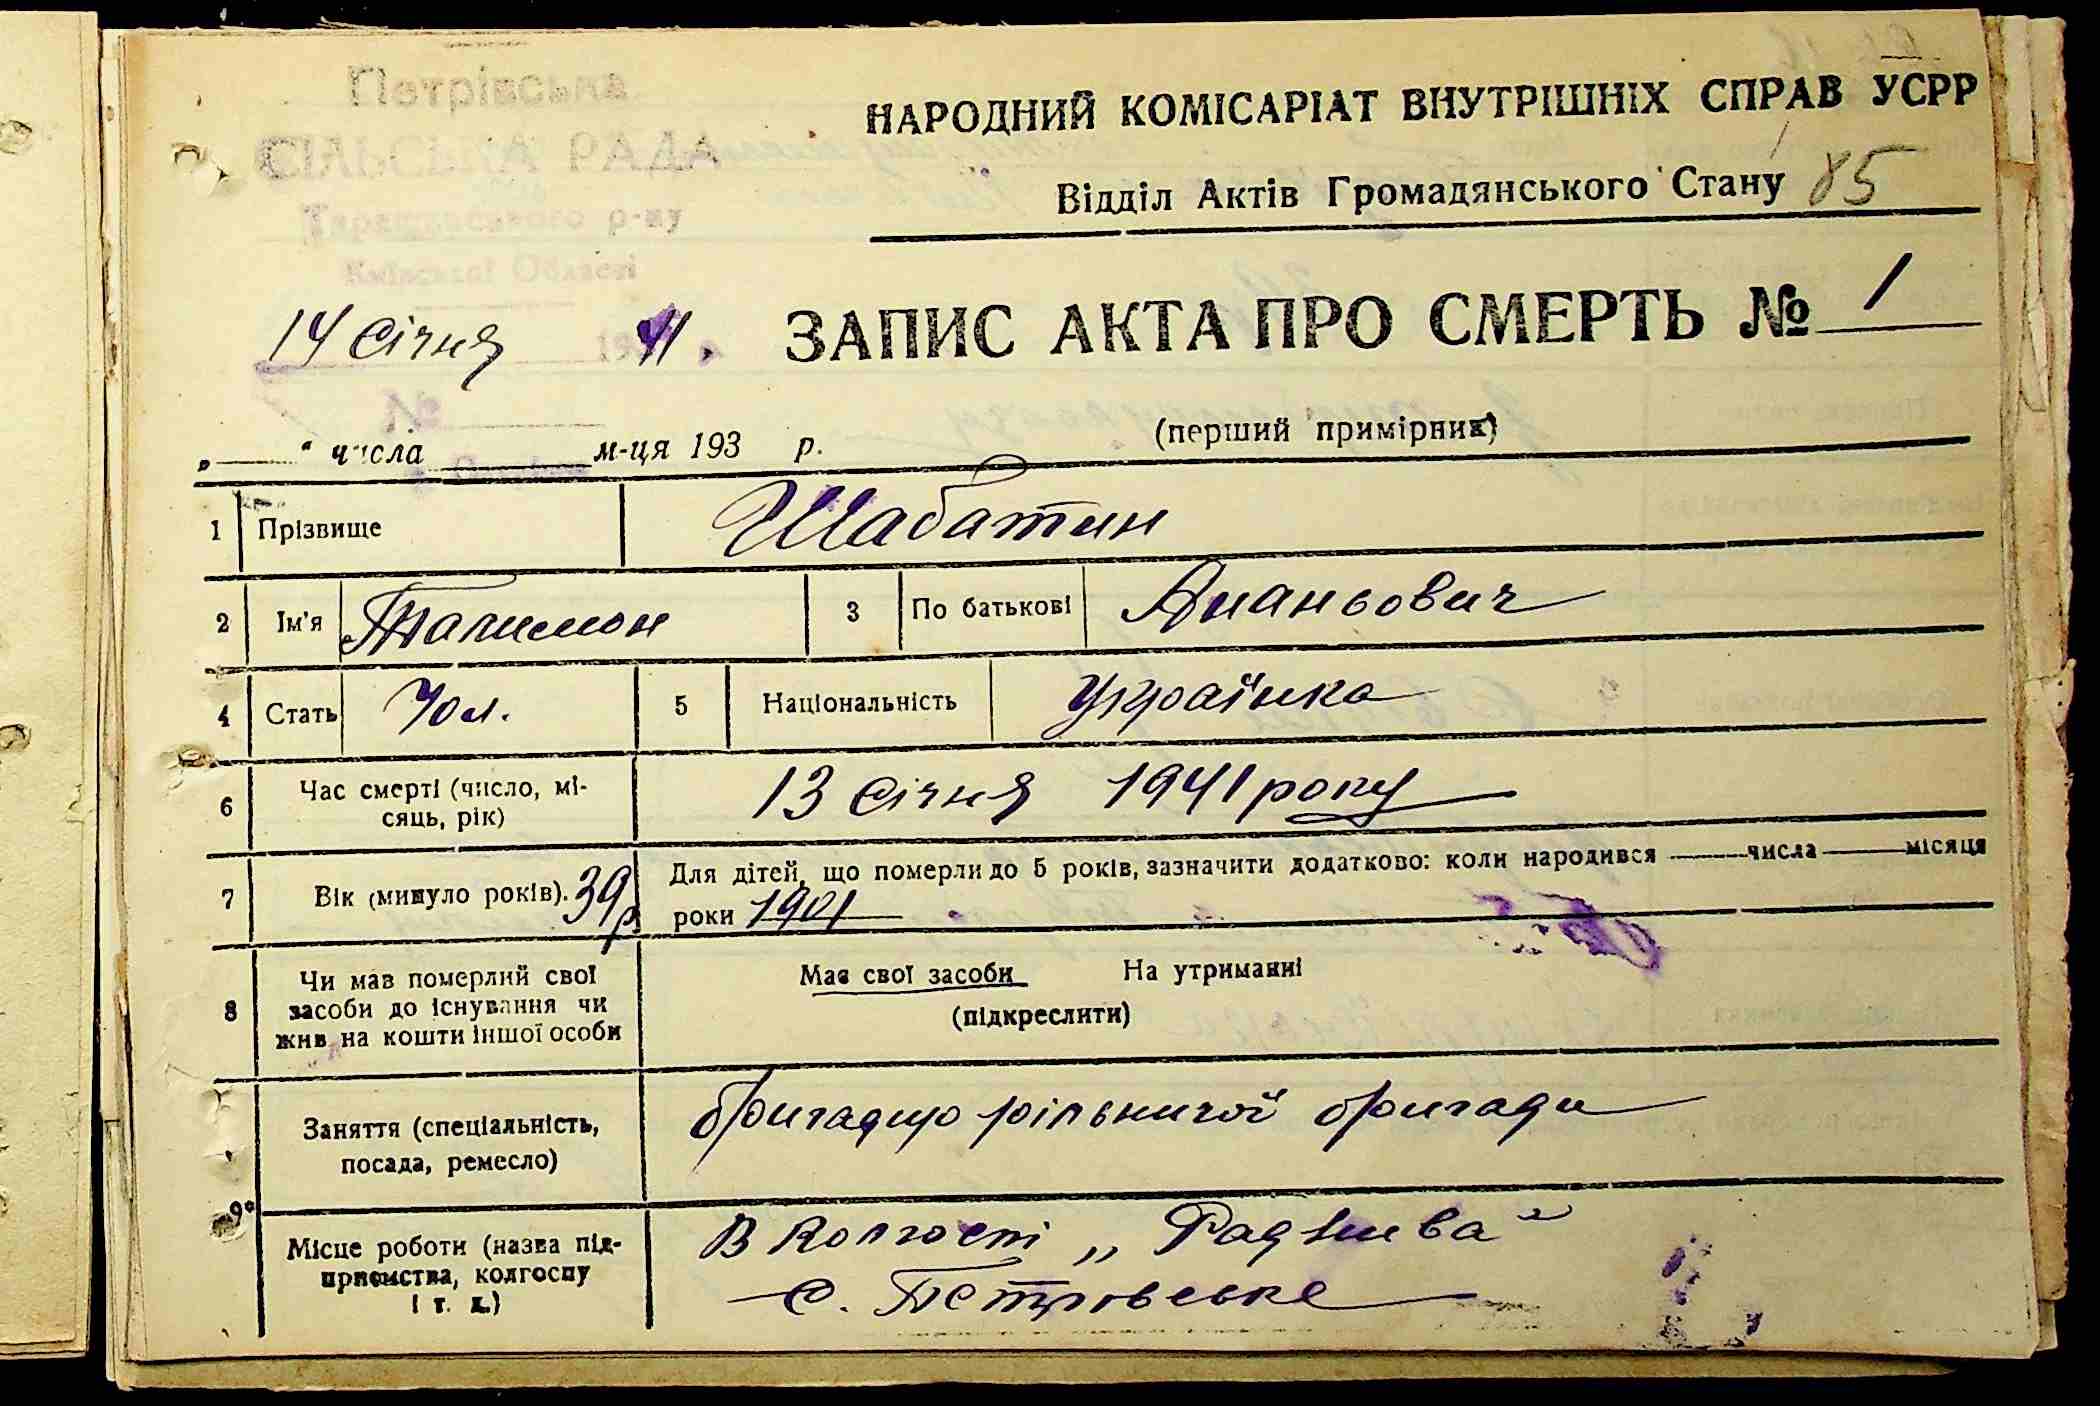 Петрівська
СІЛЬСЬКА РАДА
Таращанського р-ну
Київської Області
НАРОДНИЙ КОМІСАРІАТ ВНУТРІШНІХ СПРАВ УСРР
Відділ Актів Громадянського Стану 85
14 січня 1941.
ЗАПИС АКТА ПРО СМЕРТЬ № 1
№
„ “ числа м-ця 193 р.
(перший примірник)
1 Прізвище Шабатин
2 Ім'я Талимон 3 По батькові Ананьович
4 Стать Чол. 5 Національність Українка
6 Час смерті (число, мі-
сяць, рік) 13 січня 1941 року
7 Вік (минуло років). 39 р Для дітей, що померли до 5 років, зазначити додатково: коли народився числа місяця
роки 1901
8 Чи мав померлий свої
засоби до існування чи
жив на кошти іншої особи
Має свої засоби На утриманні
(підкреслити)
9 Заняття (спеціальність,
посада, ремесло)
бригадир рільничої бригади
Місце роботи (назва під-
приємства, колгоспу
і т. д.)
В колгоспі „Рад нива“
с. Петровське